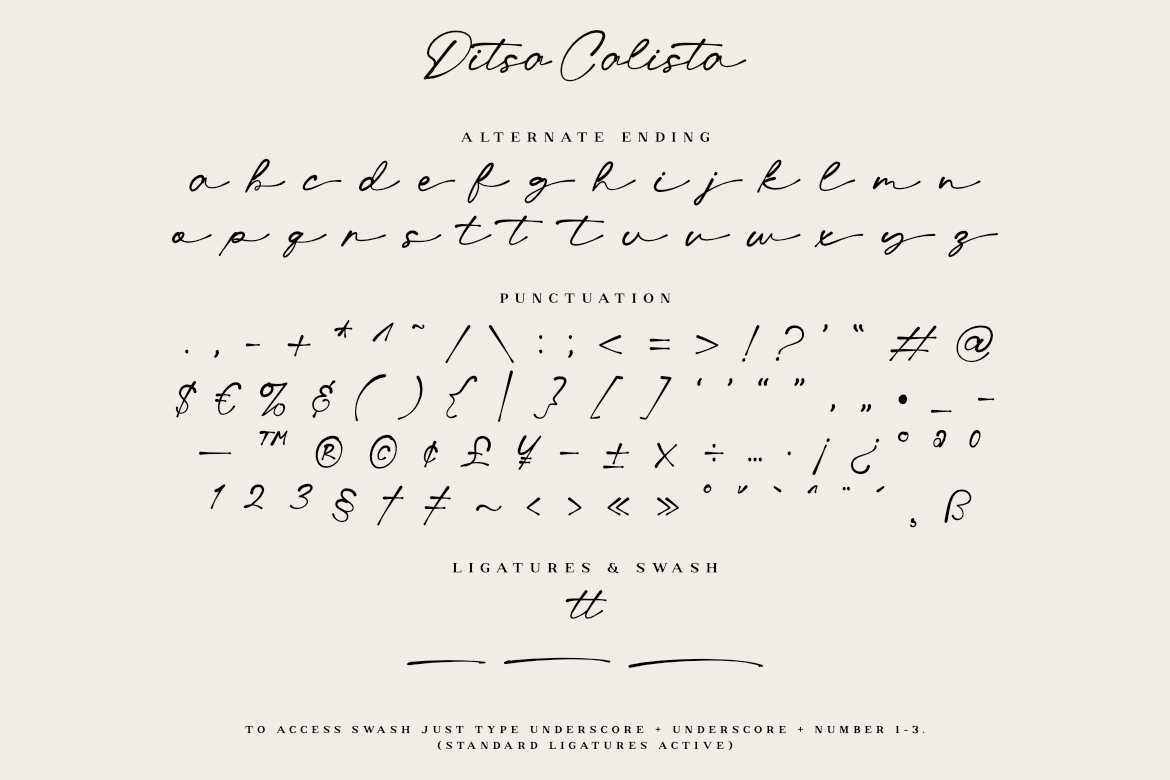 Ditsa Calista
ALTERNATE ENDING
a b c d e f g h i j k l m n
o p q r s t t t u v w x y z
PUNCTUATION
. , - + * ^ ~ / \ : ; < = > ! ? ' " # @
$ € % & ( ) { | } [ ] ‘ ’ “ ” ‚ „ • _ –
— ™ ® © ¢ £ ¥ − ± × ÷ … · ¡ ¿ ° ª º
1 2 3 § † ≠ ~ ‹ › « » ˚ ˇ ` ˆ ¨ ´ ¸ ß
LIGATURES & SWASH
tt
TO ACCESS SWASH JUST TYPE UNDERSCORE + UNDERSCORE + NUMBER 1-3.
(STANDARD LIGATURES ACTIVE)